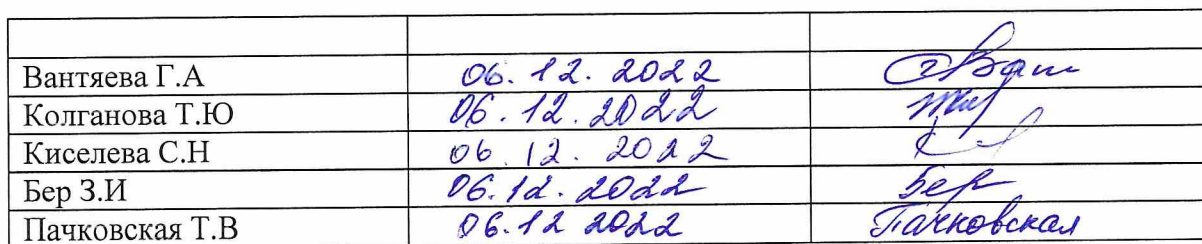 Вантяева Г.А 06.12.2022
Колганова Т.Ю 06.12.2022
Киселева С.Н 06.12.2022
Бер З.И 06.12.2022 Бер
Пачковская Т.В 06.12 2022 Пачковская